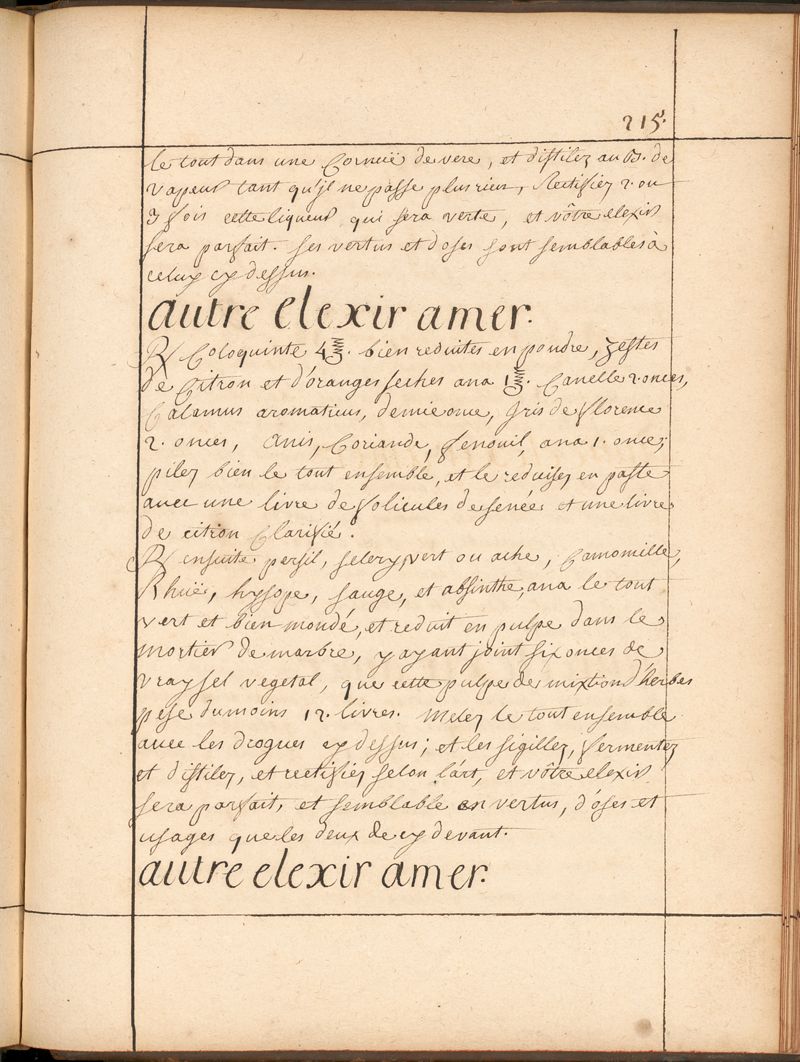 215.
le tout dans une Cornuë de vere, et distilez au B. de
vapeur tant qu'jl ne passe plus rien, Rectifiez 2. ou
3 fois cette liqueur qui sera verte, et vôtre elexir
sera parfait. ses vertus et doses sont semblables à
celuy cy dessus.
autre elexir amer.
℞ Coloquinte 4 ℥. bien reduites en poudre, zestes
de Citron et d'oranges seches ana 1 ℥. Canelle 2. onces,
Calamus aromaticus, demie once, Jris de florence
2. onces, Anis, Coriande, fenouil, ana 1. once;
pilez bien le tout ensemble, et le reduisez en paste
avec une livre de folicules de senée et une livre
de citron Clarifié.
℞ ensuite persil, selery vert ou ache, Camomille,
Rhuë, hysope, sauge, et absinthe, ana le tout
vert et bien mondé, et reduit en pulpe dans le
mortier de marbre, y ayant joint six onces de
vray sel vegetal, que cette pulpe de mixtion d'herbes
pese du moins 12. livres. Melez le tout ensemble
avec les drogues cy dessus; et les sigillez, fermentez
et distilez, et rectifiez selon l'art, et vôtre elexir
sera parfait, et semblable en vertus, d'oses et
usages que les deux de cy devant.
autre elexir amer.